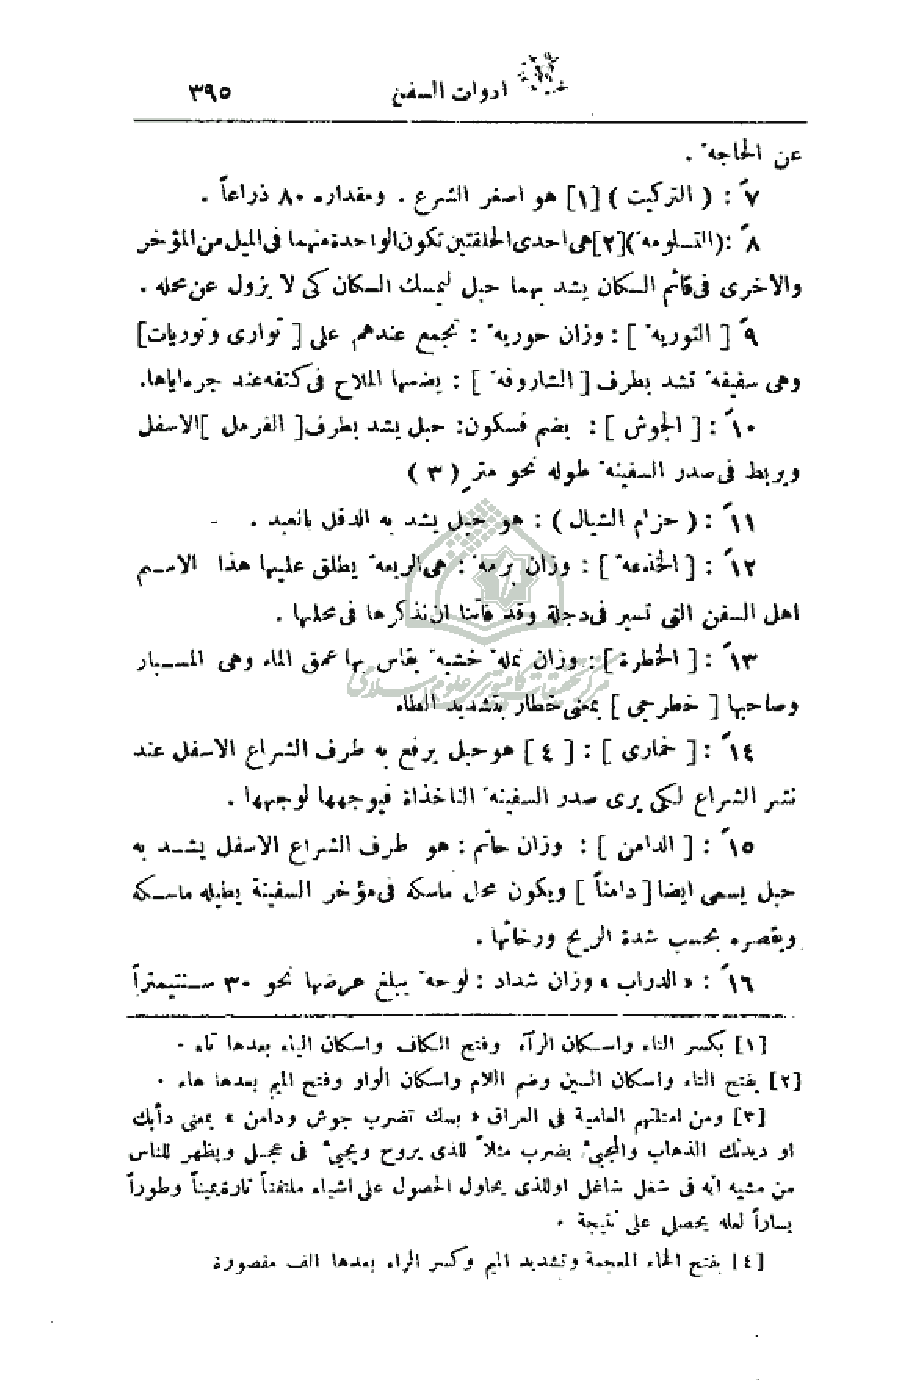 ادوات السفن ٣٩٥
عن الحاجة .
٧ً : ( التركيت ) [١] هو اصغر الشرع . ومقداره ٨٠ ذراعاً .
٨ً :(التسلومة)[٢]هى احدى الحلقتين تكون الواحدة منهما فى الميل من المؤخر
والاخرى فى قائم السكان يشد بهما حبل ليمسك السكان كى لا يزول عن محله .
٩ً [ التورية ] : وزان حورية : تجمع عندهم على [ توارى وتوريات]
وهى سفيفة تشد بطرف [ الشاروفة ] : يضعها الملاح فى كتفه عند جره اياها.
١٠ً : [ الجوش ] : بضم فسكون: حبل يشد بطرف[ الفرمل ]الاسفل
ويربط فى صدر السفينة طوله نحو متر ( ٣ )
١١ً : ( حزام الشيال ) : هو حبل يشد به الدقل بالعبد .
١٢ً : [ الخنعة ] : وزان برمة : هى الربعة يطلق عليها هذا الاسم
اهل السفن التى تسير فى دجلة وقد فاتنا ان نذكرها فى محلها .
١٣ً : [ الخطرة ] : وزان نملة خشبة يقاس بها عمق الماء وهى المسبار
وصاحبها [ خطرجى ] بمعنى خطار بتشديد الطاء
١٤ً : [ خمارى ] : [ ٤ ] هو حبل يرفع به طرف الشراع الاسفل عند
نشر الشراع لكى يرى صدر السفينة الناخذاة فيوجهها لوجهها .
١٥ً : [ الدامن ] : وزان حاتم : هو طرف الشراع الاسفل يشد به
حبل يسمى ايضا [ دامناً ] ويكون محل ماسكه فى مؤخر السفينة يطيله ماسكه
ويقصره بحسب شدة الريح ورخائها .
١٦ً : « الدراب » وزان شداد : لوحة يبلغ عرضها نحو ٣٠ سنتيمتراً
[١] بكسر التاء واسكان الرآء وفتح الكاف واسكان الياء بعدها تاء .
[٢] بفتح التاء واسكان السين وضم اللام واسكان الواو وفتح الميم بعدها هاء .
[٣] ومن امثالهم العامية فى العراق « بسك تضرب جوش ودامن » بمعنى دأبك
او ديدنك الذهاب والمجىء يضرب مثلاً للذى يروح ويجىء فى عجل ويظهر للناس
من مشيه انه فى شغل شاغل او للذى يحاول الحصول على اشياء ملتفتاً تارة يميناً وطوراً
يساراً لعله يحصل على نتيجة .
[٤] بفتح الخاء المعجمة وتشديد الميم وكسر الراء بعدها الف مقصورة